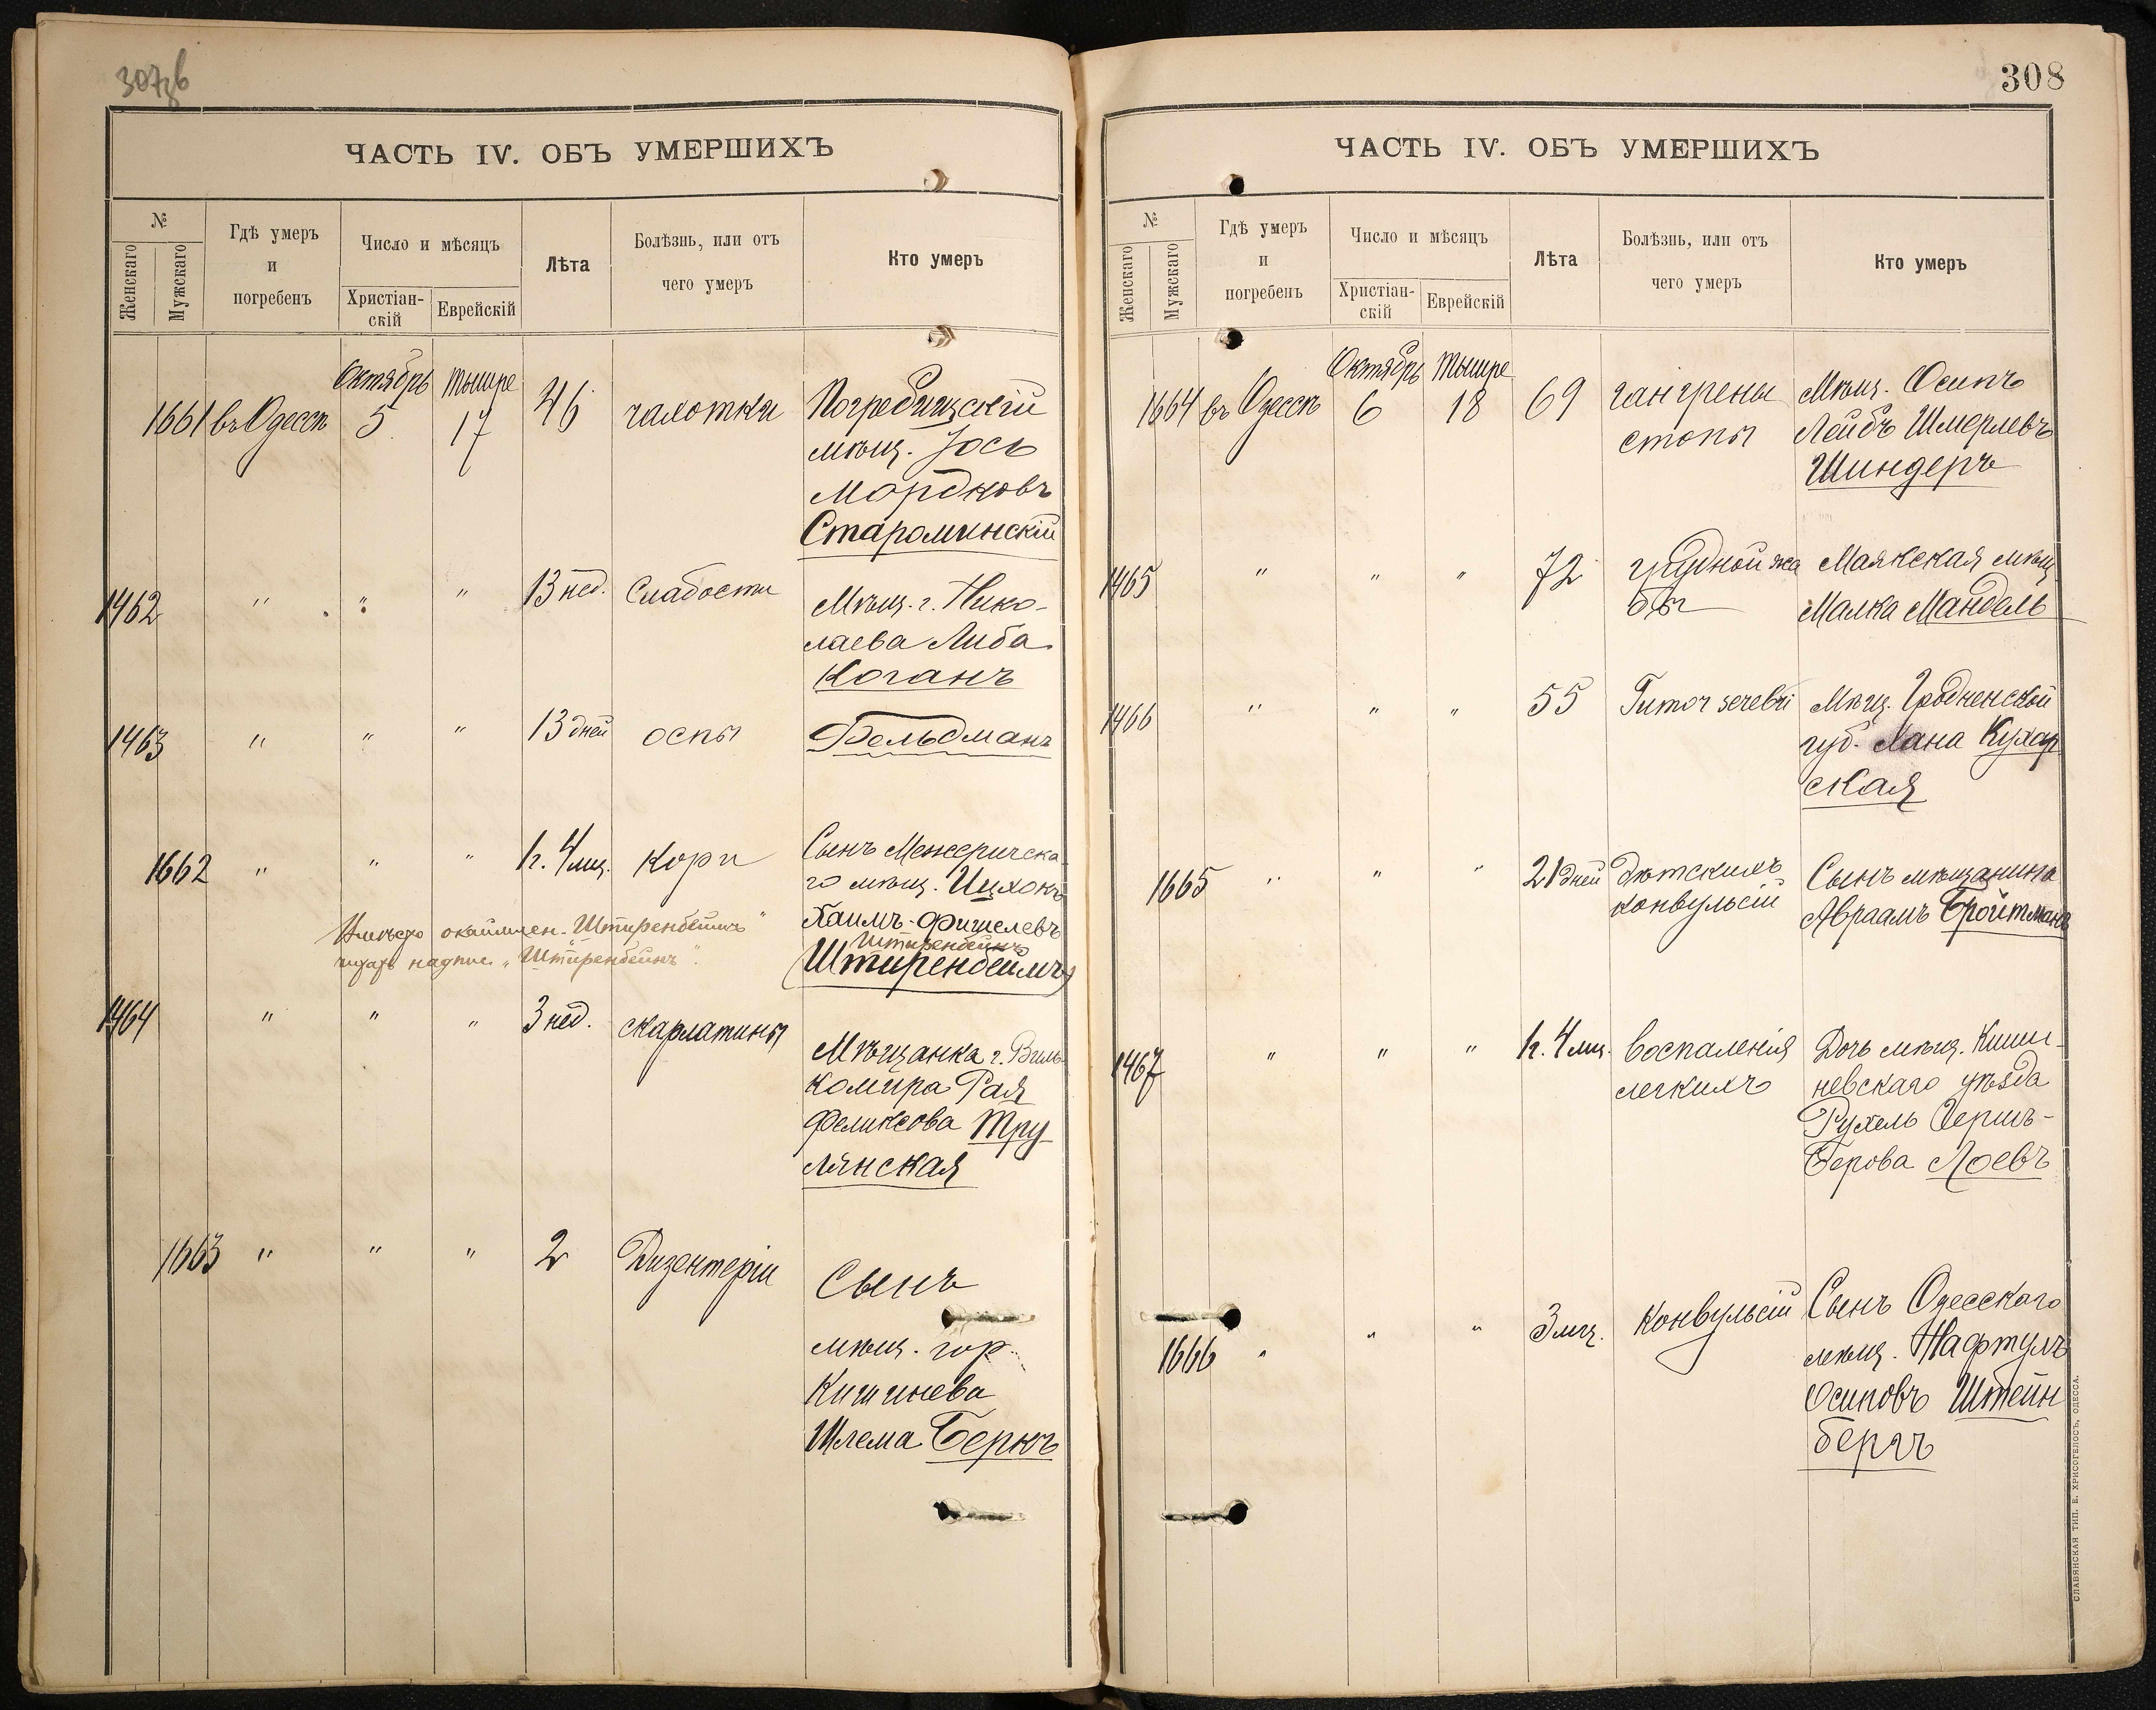 307зв
ЧАСТЬ IV. ОБЪ УМЕРШИХЪ
№
Женскаго
Мужскаго
Гдѣ умеръ
и
погребенъ
Число и мѣсяцъ
Христіан-
скій
Еврейскій
Лѣта
Болѣзнь, или отъ
чего умеръ
Кто умеръ
Октябрь Тишре
1661 въ Одессѣ 5 17 46 чахотки Погребищскій
мѣщ. Іось
Мордковъ
Староминскій
1462 " " " 13 нед. Слабости Мѣщ. г. Нико-
лаева Либа
Коганъ
1463 " " " 13 дней оспы Фельдманъ
1662 " " " 1 г. 4 мц. Кори Сынъ Межеричска-
го мѣщ. Ицхокъ
Хаимъ-Фишелевъ
Штиренбейнъ
(Штиренбеймъ)
Вмѣсто "Штиренбеймъ"
надпис. "Штиренбейнъ".
1464 " " " 3 нед. скарлатины Мѣщанка г. Виль-
комира Рая
Феликсова Тру
лянская
1663 " " " 2 Дизентеріи Сынъ
мѣщ. гор.
Кишинева
Шлема Беркъ
308
ЧАСТЬ IV. ОБЪ УМЕРШИХЪ
№
Женскаго
Мужскаго
Гдѣ умеръ
и
погребенъ
Число и мѣсяцъ
Христіан-
скій
Еврейскій
Лѣта
Болѣзнь, или отъ
чего умеръ
Кто умеръ
Октябрь Тишре
1664 въ Одессѣ 6 18 69 гангрены Мѣщ. Осипъ
стопы Лейбъ Шмерлевъ
Шиндеръ
1465 " " " 72 грудной жа Маякская мѣщ
бы Малка Мандель
1466 " " " 55 Tumor cerebri Мѣщ. Гродненской
губ. Хана Кухар
ская
1665 " " " 21 дней Дѣтскихъ Сынъ мѣщанина
конвульсій Авраамъ Бройтманъ
1467 " " " 1 г. 4 мц. воспаленія Дочь мѣщ. Киши-
легкихъ невскаго уѣзда
Рухель Герш-
Берова Лоевъ
1666 " " " 3 мц. Конвульсій Сынъ Одесскаго
мѣщ. Нафтулъ
Осиповъ Штейн
бергъ
СЛАВЯНСКАЯ ТИП. Е. ХРИСОГЕЛОСЪ, ОДЕССА.